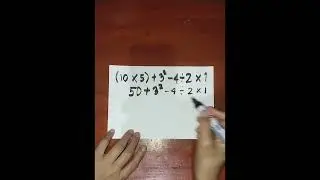 (10 × 5) + 3² - 4 ÷ 2 × 1
50 + 3² - 4 ÷ 2 × 1